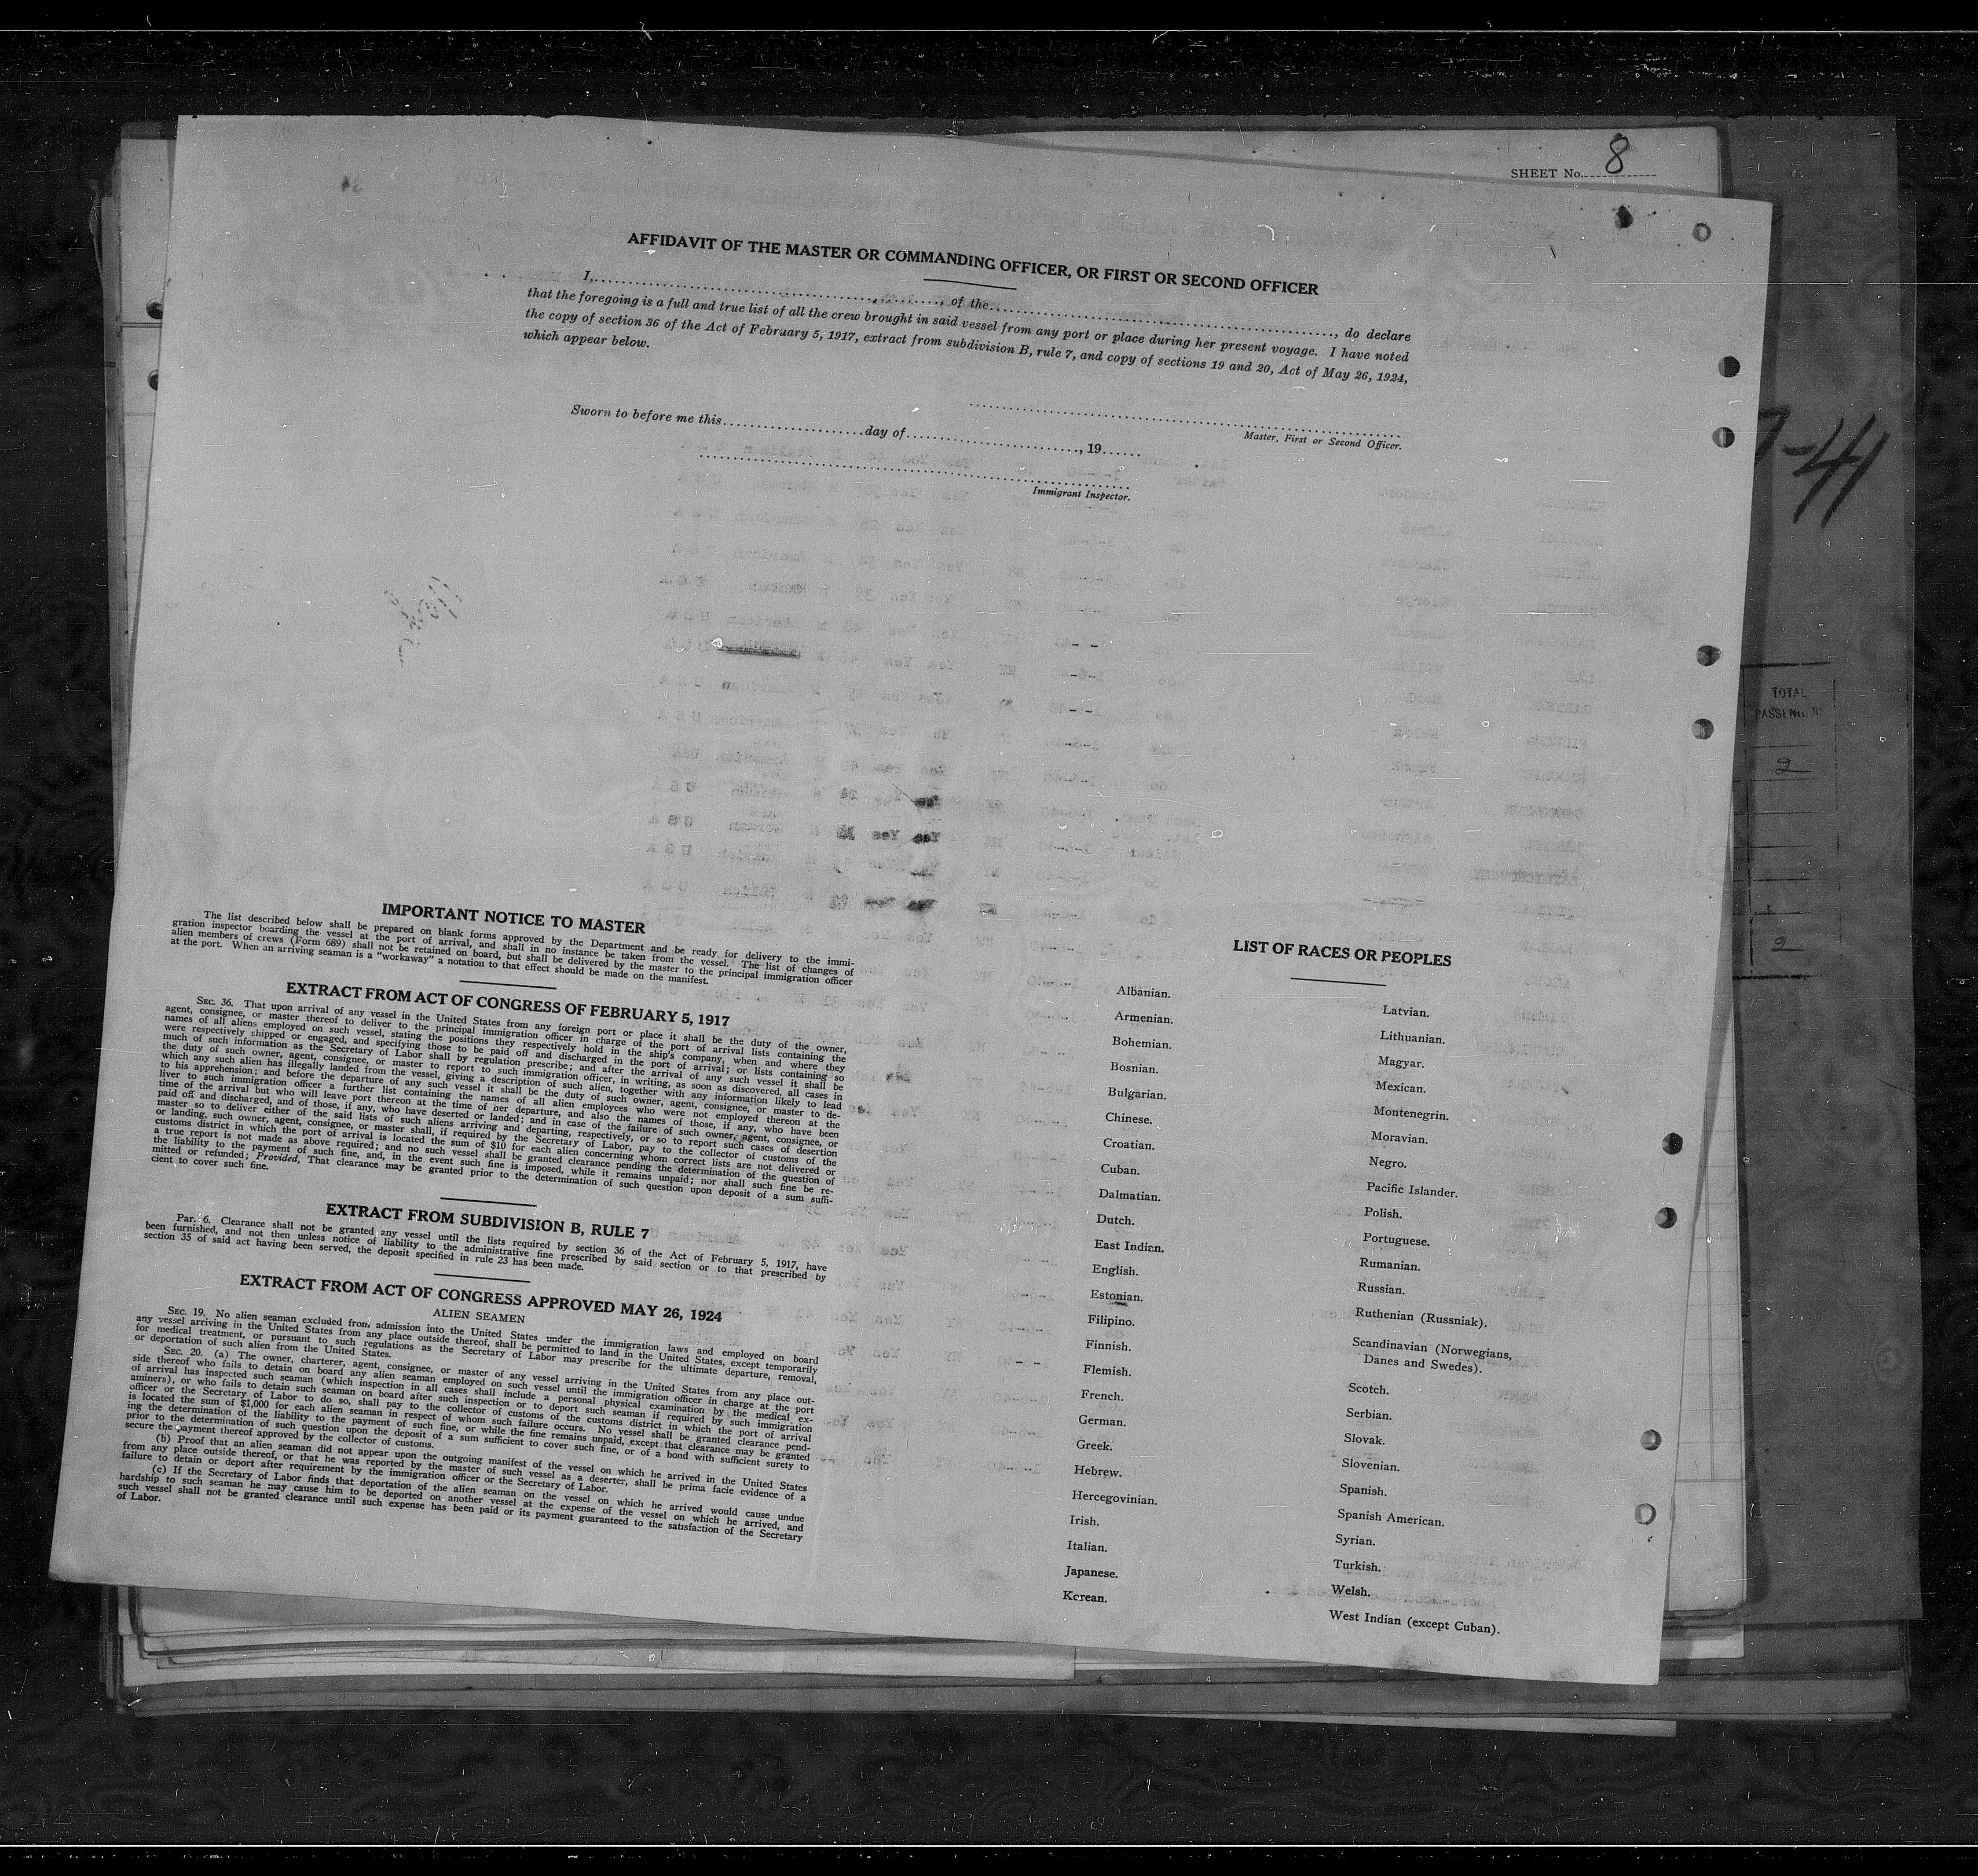 SHEET No. 8
AFFIDAVIT OF THE MASTER OR COMMANDING OFFICER, OR FIRST OR SECOND OFFICER
I,........................................, of the........................................, do declare
that the foregoing is a full and true list of all the crew brought in said vessel from any port or place during her present voyage. I have noted
the copy of section 36 of the Act of February 5, 1917, extract from subdivision B, rule 7, and copy of sections 19 and 20, Act of May 26, 1924,
which appear below.
Master, First or Second Officer.
Sworn to before me this....................day of........................., 19......
Immigrant Inspector.
7-41
TOTAL
PASSENG
2
1
2
IMPORTANT NOTICE TO MASTER
The list described below shall be prepared on blank forms approved by the Department and be ready for delivery to the immi-
gration inspector boarding the vessel at the port of arrival, and shall in no instance be taken from the vessel. The list of changes of
alien members of crews (Form 689) shall not be retained on board, but shall be delivered by the master to the principal immigration officer
at the port. When an arriving seaman is a "workaway" a notation to that effect should be made on the manifest.
EXTRACT FROM ACT OF CONGRESS OF FEBRUARY 5, 1917
SEC. 36. That upon arrival of any vessel in the United States from any foreign port or place it shall be the duty of the owner,
agent, consignee, or master thereof to deliver to the principal immigration officer in charge of the port of arrival lists containing the
names of all aliens employed on such vessel, stating the positions they respectively hold in the ship's company, when and where they
were respectively shipped or engaged, and specifying those to be paid off and discharged in the port of arrival; or lists containing so
much of such information as the Secretary of Labor shall by regulation prescribe; and after the arrival of any such vessel it shall be
the duty of such owner, agent, consignee, or master to report to such immigration officer, in writing, as soon as discovered, all cases in
which any such alien has illegally landed from the vessel, giving a description of such alien, together with any information likely to lead
to his apprehension; and before the departure of any such vessel it shall be the duty of such owner, agent, consignee, or master to de-
liver to such immigration officer a further list containing the names of all alien employees who were not employed thereon at the
time of the arrival but who will leave port thereon at the time of her departure, and also the names of those, if any, who have been
paid off and discharged, and of those, if any, who have deserted or landed; and in case of the failure of such owner, agent, consignee, or
master so to deliver either of the said lists of such aliens arriving and departing, respectively, or so to report such cases of desertion
or landing, such owner, agent, consignee, or master shall, if required by the Secretary of Labor, pay to the collector of customs of the
customs district in which the port of arrival is located the sum of $10 for each alien concerning whom correct lists are not delivered or
a true report is not made as above required; and no such vessel shall be granted clearance pending the determination of the question of
the liability to the payment of such fine, and, in the event such fine is imposed, while it remains unpaid; nor shall such fine be re-
mitted or refunded; Provided, That clearance may be granted prior to the determination of such question upon deposit of a sum suffi-
cient to cover such fine.
EXTRACT FROM SUBDIVISION B, RULE 7
Par. 6. Clearance shall not be granted any vessel until the lists required by section 36 of the Act of February 5, 1917, have
been furnished, and not then unless notice of liability to the administrative fine prescribed by said section or to that prescribed by
section 35 of said act having been served, the deposit specified in rule 23 has been made.
EXTRACT FROM ACT OF CONGRESS APPROVED MAY 26, 1924
ALIEN SEAMEN
SEC. 19. No alien seaman excluded from admission into the United States under the immigration laws and employed on board
any vessel arriving in the United States from any place outside thereof, shall be permitted to land in the United States, except temporarily
for medical treatment, or pursuant to such regulations as the Secretary of Labor may prescribe for the ultimate departure, removal,
or deportation of such alien from the United States.
SEC. 20. (a) The owner, charterer, agent, consignee, or master of any vessel arriving in the United States from any place out-
side thereof who fails to detain on board any alien seaman employed on such vessel until the immigration officer in charge at the port
of arrival has inspected such seaman (which inspection in all cases shall include a personal physical examination by the medical ex-
aminers), or who fails to detain such seaman on board after such inspection or to deport such seaman if required by such immigration
officer or the Secretary of Labor to do so, shall pay to the collector of customs of the customs district in which the port of arrival
is located the sum of $1,000 for each alien seaman in respect of whom such failure occurs. No vessel shall be granted clearance pend-
ing the determination of the liability to the payment of such fine, or while the fine remains unpaid, except that clearance may be granted
prior to the determination of such question upon the deposit of a sum sufficient to cover such fine, or of a bond with sufficient surety to
secure the payment thereof approved by the collector of customs.
(b) Proof that an alien seaman did not appear upon the outgoing manifest of the vessel on which he arrived in the United States
from any place outside thereof, or that he was reported by the master of such vessel as a deserter, shall be prima facie evidence of a
failure to detain or deport after requirement by the immigration officer or the Secretary of Labor.
(c) If the Secretary of Labor finds that deportation of the alien seaman on the vessel on which he arrived would cause undue
hardship to such seaman he may cause him to be deported on another vessel at the expense of the vessel on which he arrived, and
such vessel shall not be granted clearance until such expense has been paid or its payment guaranteed to the satisfaction of the Secretary
of Labor.
LIST OF RACES OR PEOPLES
Albanian.
Armenian.
Bohemian.
Bosnian.
Bulgarian.
Chinese.
Croatian.
Cuban.
Dalmatian.
Dutch.
East Indian.
English.
Estonian.
Filipino.
Finnish.
Flemish.
French.
German.
Greek.
Hebrew.
Hercegovinian.
Irish.
Italian.
Japanese.
Korean.
Latvian.
Lithuanian.
Magyar.
Mexican.
Montenegrin.
Moravian.
Negro.
Pacific Islander.
Polish.
Portuguese.
Rumanian.
Russian.
Ruthenian (Russniak).
Scandinavian (Norwegians,
Danes and Swedes).
Scotch.
Serbian.
Slovak.
Slovenian.
Spanish.
Spanish American.
Syrian.
Turkish.
Welsh.
West Indian (except Cuban).